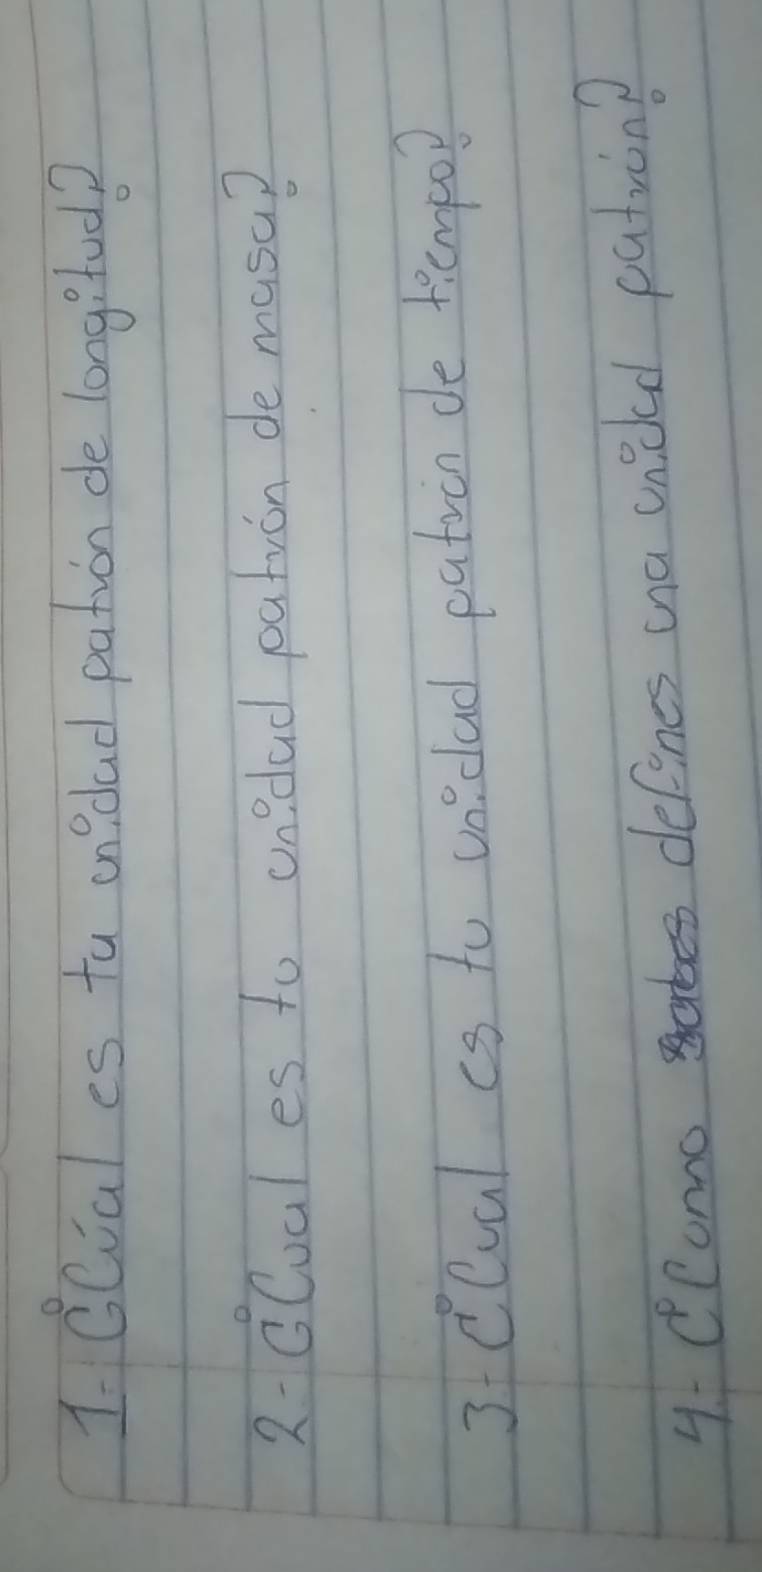 1- ¿Cúal es tu unidad patrón de longitud?
2- ¿Cual es tu unidad patrón de masa?
3- ¿Cual es tu unidad patrón de tiempo?
4- ¿Como defines una unidad patrón?